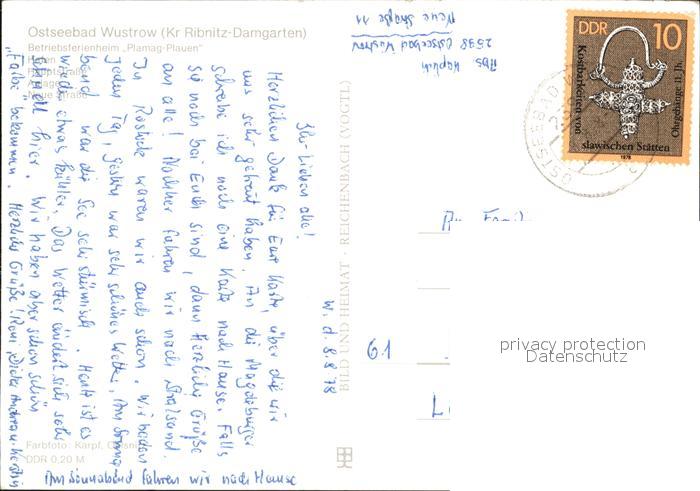 Ostseebad Wustrow (Kr Ribnitz-Damgarten)
Betriebsferienheim „Plamag-Plauen"
Hafen
Hauptstraße
Neue Straße
Farbfoto: Karpf,
DDR 0,20 M
BILD UND HEIMAT · REICHENBACH (VOGTL)
Abs.
2598 Ostseebad Wustrow
Neue Straße 11
DDR 10
Kostbarkeiten von
slawischen Stätten
Ohrgehänge 11. Jh.
1978
OSTSEEBAD
W. d. 8.8.78
Ihr lieben alle!
Herzlichen Dank für Eure Karte, über die wir
uns sehr gefreut haben. An die Magdeburger
schreibe ich noch eine Karte nach Hause. Falls
sie noch bei Euch sind, dann Herzliche Grüße
an alle! Nachher fahren wir nach Stralsund.
In Rostock waren wir auch schon. Wir baden
jeden Tag, gestern war sehr schönes Wetter, Am Sonn
abend war die See sehr stürmisch. Heute ist es
wieder etwas kühler. Das Wetter ändert sich sehr
schnell hier. Wir haben aber schon schön
„Farbe" bekommen. Herzliche Grüße!
Am Sonnabend fahren wir nach Hause
61
privacy protection
Datenschutz